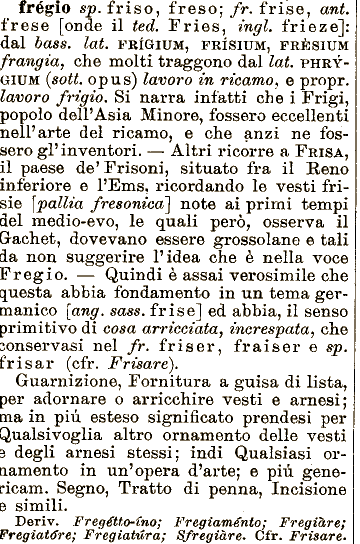 frégio sp. friso, freso; fr. frise, ant.
frese [onde il ted. Fries, ingl. frieze]:
dal bass. lat. FRÍGIUM, FRÍSIUM, FRÈSIUM
frangia, che molti traggono dal lat. PHRÝ-
GIUM (sott. opus) lavoro in ricamo, e propr.
lavoro frigio. Si narra infatti che i Frigi,
popolo dell'Asia Minore, fossero eccellenti
nell'arte del ricamo, e che anzi ne fos-
sero gl'inventori. — Altri ricorre a FRISA,
il paese de' Frisoni, situato fra il Reno
inferiore e l'Ems, ricordando le vesti fri-
sie [pallia fresonica] note ai primi tempi
del medio-evo, le quali però, osserva il
Gachet, dovevano essere grossolane e tali
da non suggerire l'idea che è nella voce
Fregio. — Quindi è assai verosimile che
questa abbia fondamento in un tema ger-
manico [ang. sass. frise] ed abbia, il senso
primitivo di cosa arricciata, increspata, che
conservasi nel fr. friser, fraiser e sp.
frisar (cfr. Frisare).
Guarnizione, Fornitura a guisa di lista,
per adornare o arricchire vesti e arnesi;
ma in piú esteso significato prendesi per
Qualsivoglia altro ornamento delle vesti
e degli arnesi stessi; indi Qualsiasi or-
namento in un'opera d'arte; e piú gene-
ricam. Segno, Tratto di penna, Incisione
e simili.
Deriv. Fregétto-íno; Fregiaménto; Fregiàre;
Fregiatóre; Fregiatúra; Sfregiàre. Cfr. Frisare.